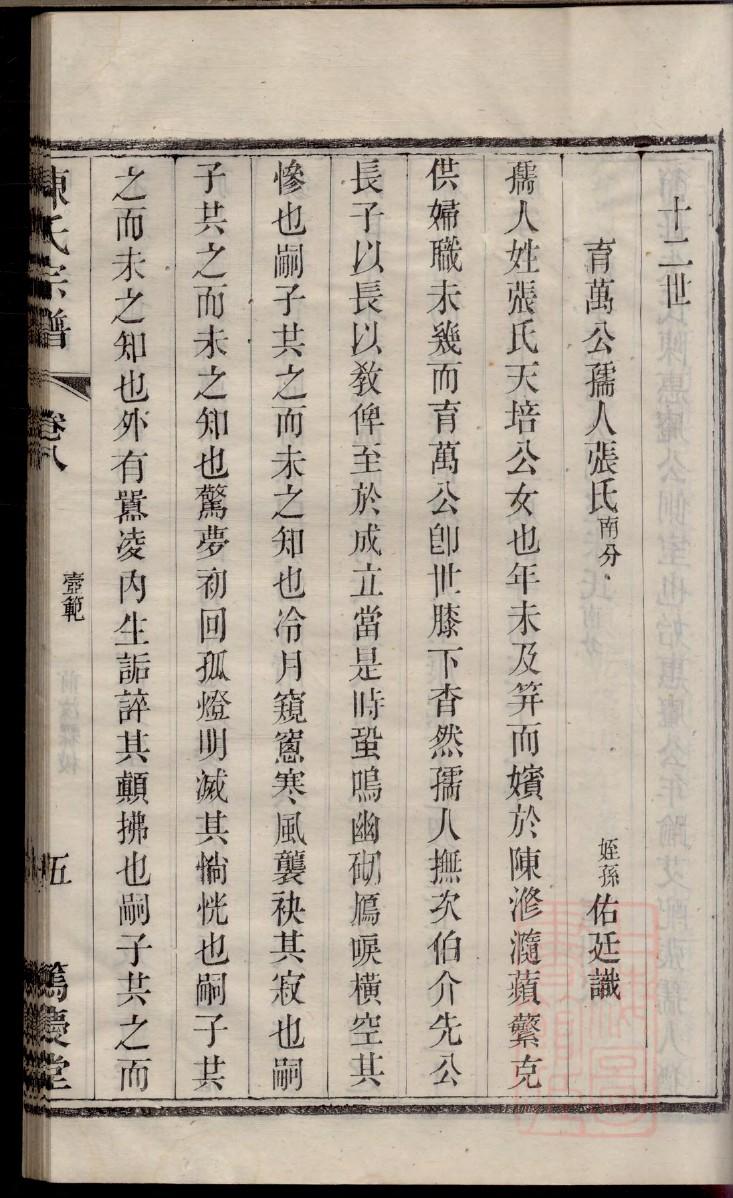 十二世
育萬公孺人張氏南分
姪孫佑廷識
孺人姓張氏天培公女也年未及笄而嬪於陳滫瀡蘋蘩克
供婦職未幾而育萬公卽世膝下杳然孺人撫次伯介先公
長子以長以敎俾至於成立當是時蛩鳴幽砌鴈唳橫空其
慘也嗣子共之而未之知也冷月窺窻寒風襲袂其寂也嗣
子共之而未之知也驚夢初回孤燈明滅其惝恍也嗣子共
之而未之知也外有囂凌內生詬誶其顛拂也嗣子共之而
陳氏宗譜
卷八
壼範
五
篤慶堂